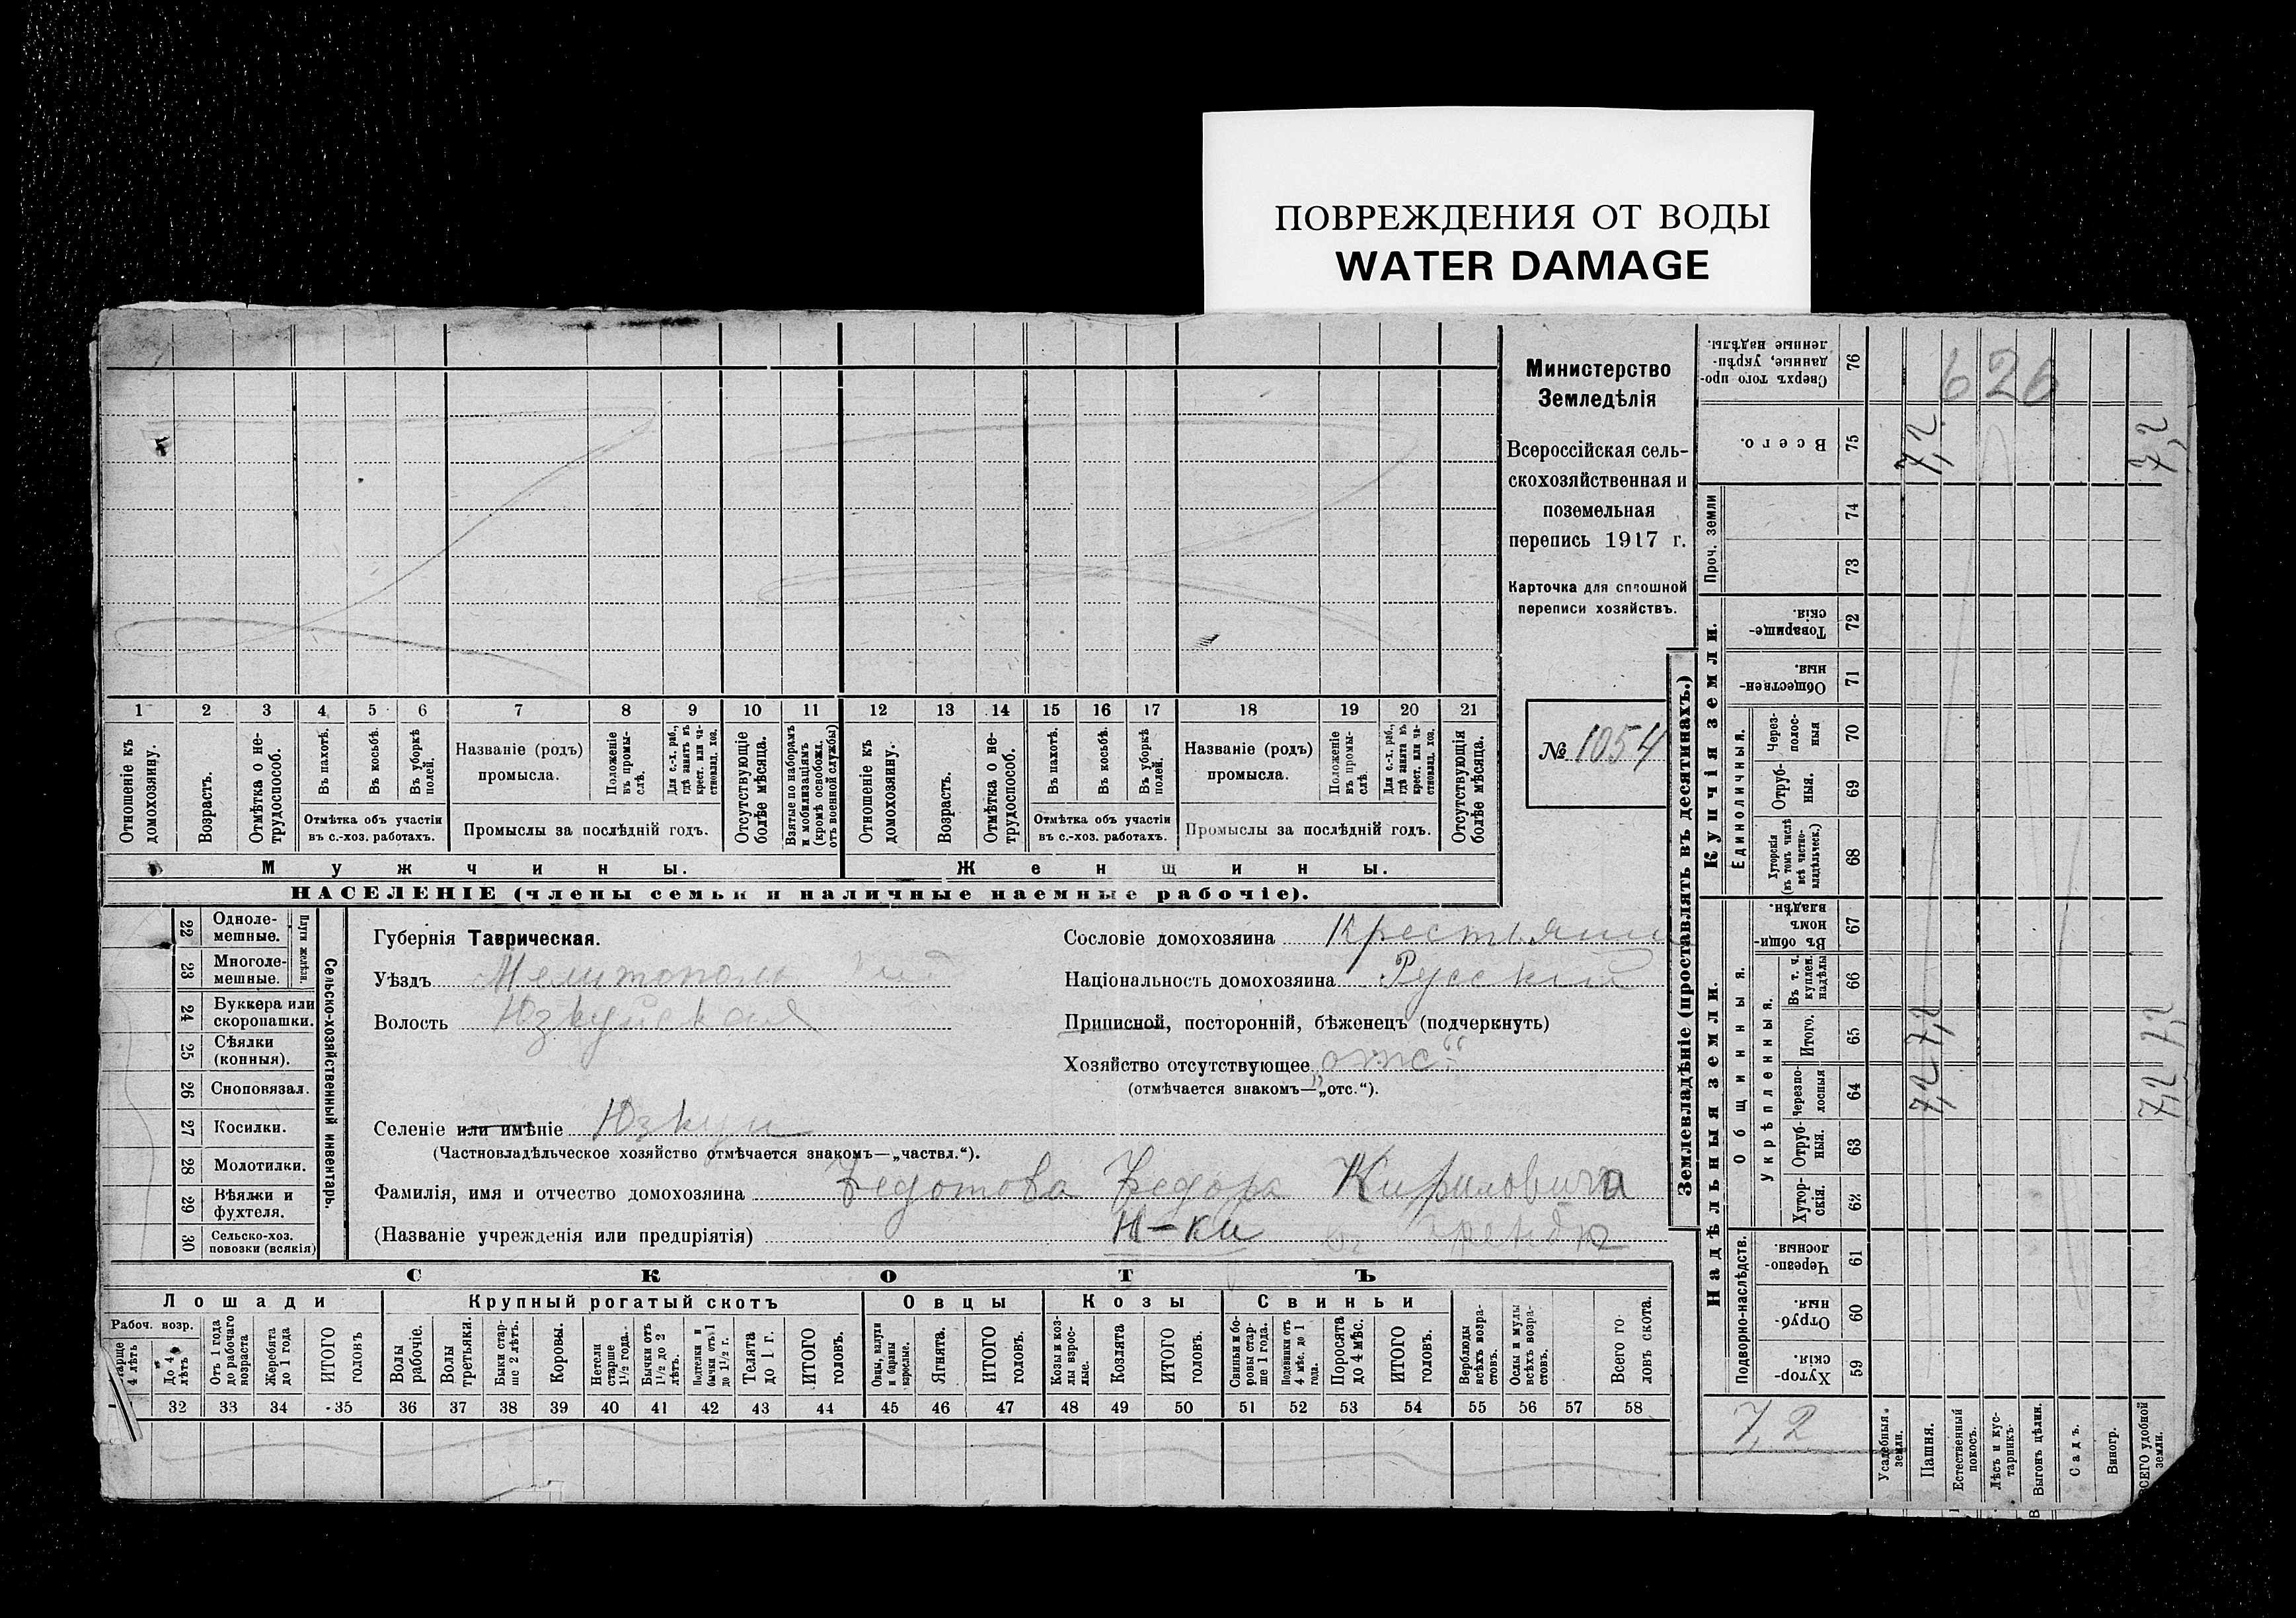 ПОВРЕЖДЕНИЯ ОТ ВОДЫ
WATER DAMAGE
Министерство
Земледѣлія
Всероссійская сель-
скохозяйственная и
поземельная
перепись 1917 г.
Карточка для сплошной
переписи хозяйствъ.
№ 1054
1 2 3 4 5 6 7 8 9 10 11 12 13 14 15 16 17 18 19 20 21
Отношеніе къ домохозяину.
Возрастъ.
Отмѣтка о не-трудоспособ.
Въ пахотѣ.
Въ косьбѣ.
Въ уборкѣ полей.
Отмѣтка объ участіи
въ с.-хоз. работахъ.
Названіе (родъ)
промысла.
Положеніе въ промы-слѣ.
Для с.-х. раб., гдѣ занятъ въ крест. или ча-стновлад. хоз.
Промыслы за послѣдній годъ.
Отсутствующіе болѣе мѣсяца.
Взятые по наборамъ и мобилизаціямъ (кромѣ освобожд. отъ военной службы)
Отношеніе къ домохозяину.
Возрастъ.
Отмѣтка о не-трудоспособ.
Въ пахотѣ.
Въ косьбѣ.
Въ уборкѣ полей.
Отмѣтка объ участіи
въ с.-хоз. работахъ.
Названіе (родъ)
промысла.
Положеніе въ промы-слѣ.
Для с.-х. раб., гдѣ занята въ крест. или ча-стновлад. хоз.
Промыслы за послѣдній годъ.
Отсутствующія болѣе мѣсяца.
Мужчины.
Женщины.
НАСЕЛЕНІЕ (члены семьи и наличные наемные рабочіе).
Сельско-хозяйственный инвентарь.
Плуги желѣзн.
22 Одноле-мешные.
23 Многоле-мешные.
24 Буккера или скоропашки.
25 Сѣялки (конныя).
26 Сноповязал.
27 Косилки.
28 Молотилки.
29 Вѣялки и фухтеля.
30 Сельско-хоз. повозки (всякія)
Губернія Таврическая.
Уѣздъ Мелитополь
Волость Юзкуйская
Селеніе или имѣніе Юзкуи
(Частновладѣльческое хозяйство отмѣчается знакомъ—„частвл.“).
Фамилія, имя и отчество домохозяина Федотова Федора Кириловича
(Названіе учрежденія или предпріятія) Н-ки
Сословіе домохозяина Крестьянин
Національность домохозяина Русскій
Приписной, посторонній, бѣженецъ (подчеркнуть)
Хозяйство отсутствующее „отс“
(отмѣчается знакомъ—„отс.“).
СКОТЪ
Лошади
Крупный рогатый скотъ
Овцы
Козы
Свиньи
Рабоч. возр.
4 лѣтъ
До 4 лѣтъ
Отъ 1 года до рабочаго возраста
Жеребята до 1 года
ИТОГО головъ
Волы рабочіе.
Волы третьяки.
Быки стар-ше 2 лѣтъ.
Коровы.
Нетели старше 1½ года.
Бычки отъ 1½ до 2 лѣтъ.
Телки и бычки отъ 1 до 1½ г.
Телята до 1 г.
ИТОГО головъ.
Овцы, валухи и бараны взрослые.
Ягнята.
ИТОГО головъ.
Козы и коз-лы взрос-лые.
Козлята
ИТОГО головъ.
Свиньи и бо-ровы стар-ше 1 года.
Подсвинки отъ 4 мѣс. до 1 года.
Поросята до 4 мѣс.
ИТОГО головъ.
Верблюды всѣхъ возра-стовъ.
Ослы и мулы всѣхъ возра-стовъ.
Всего го-ловъ скота.
32 33 34 35 36 37 38 39 40 41 42 43 44 45 46 47 48 49 50 51 52 53 54 55 56 57 58
Землевладѣніе (проставлять въ десятинахъ.)
Сверхъ того про-данные, укрѣп-ленные надѣлы. 76
626
Всего. 75
7,2 7,2
Проч. земли
74
73
Купчія земли.
Товарище-скія. 72
Обществен-ныя. 71
Единоличныя.
Через-полос-ныя 70
Отруб-ныя. 69
Хуторскія (въ томъ числѣ всѣ частно-владѣльческ.) 68
Надѣльныя земли.
Общинныя.
Въ общин-номъ владѣн. 67
Укрѣпленныя.
Въ т. ч. куплен. надѣлы 66
Итого. 65
7,2 7,2
Черезпо-лосныя 64
7,2 7,2
Отруб-ныя. 63
Хутор-скія. 62
Подворно-наслѣдств.
Черезпо-лосныя. 61
Отруб-ныя. 60
Хутор-скія. 59
7,2
Усадебныя земли.
Пашня.
Естественный покосъ.
Лѣсъ и кус-тарникъ.
Выгонъ цѣлин.
Садъ.
Виногр.
ВСЕГО удобной земли.